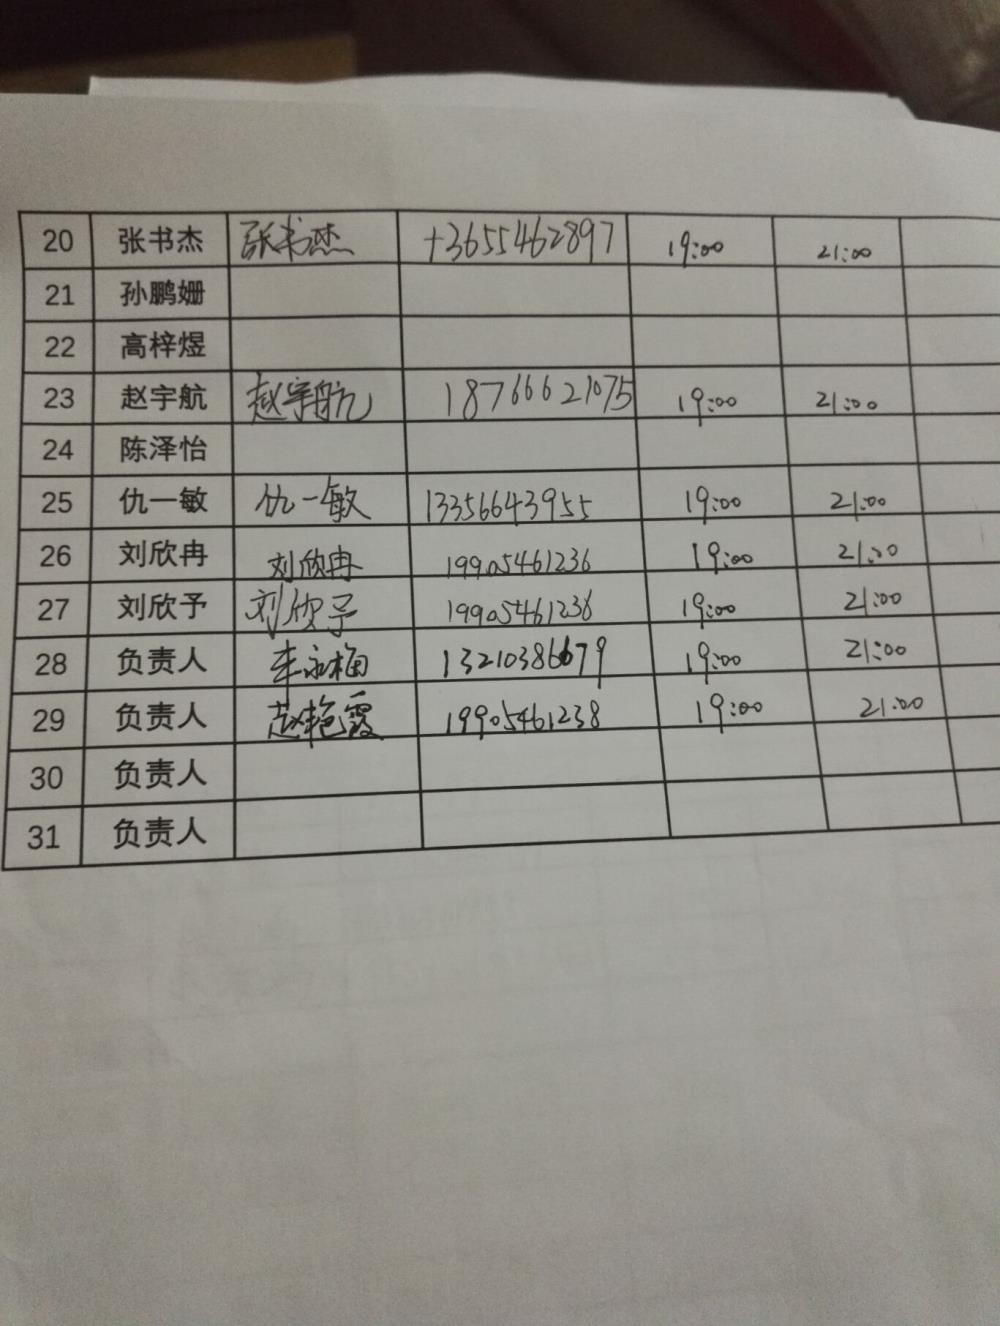 20 张书杰 张书杰 13655462897 19:00 21:00
21 孙鹏姗
22 高梓煜
23 赵宇航 赵宇航 18766621075 19:00 21:00
24 陈泽怡
25 仇一敏 仇一敏 13356643955 19:00 21:00
26 刘欣冉 刘欣冉 19905461236 19:00 21:00
27 刘欣予 刘欣予 19905461238 19:00 21:00
28 负责人 李永梅 13210386679 19:00 21:00
29 负责人 赵艳霞 19905461238 19:00 21:00
30 负责人
31 负责人